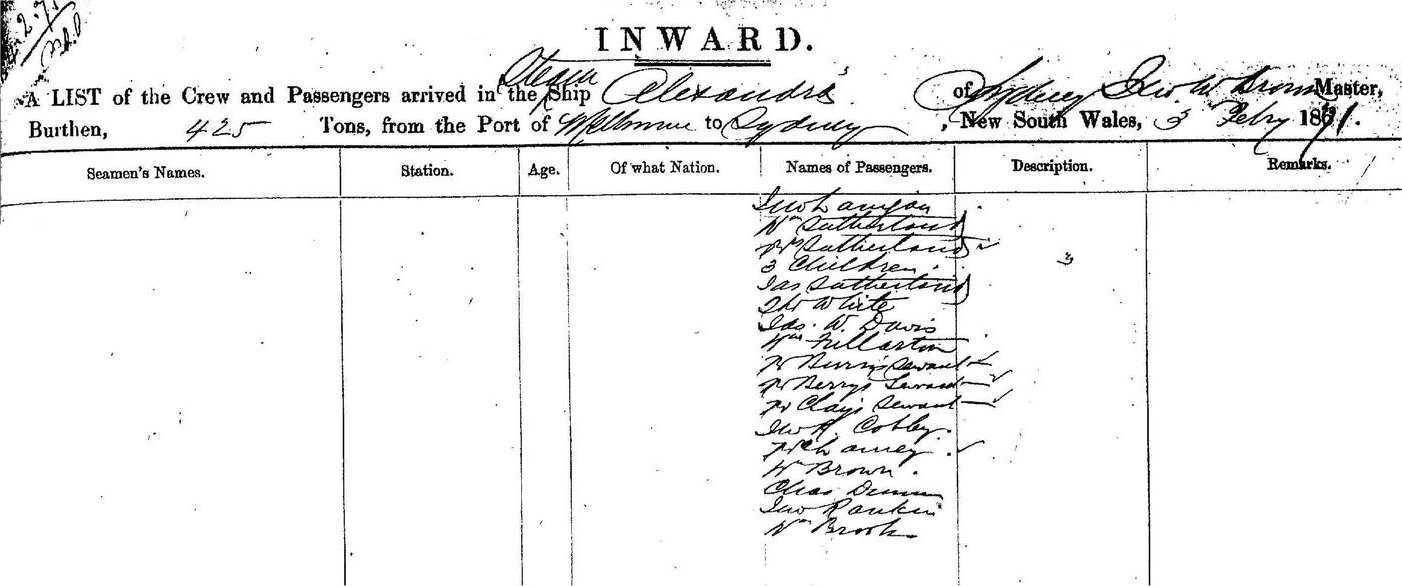 INWARD.
A LIST of the Crew and Passengers arrived in the Steam Ship Alexandra of Sydney Jno W Brown Master,
Burthen, 425 Tons, from the Port of Melbourne to Sydney, New South Wales, 3 Febry 1871.
Seamen's Names. Station. Age. Of what Nation. Names of Passengers. Description. Remarks.
Jno Lanigan
Wm Sutherland
Mrs Sutherland
3 Children 3
Jas Sutherland
White
Jas. W. Davis
Wm Fullarton
Servant
Mr Berrys Servant
Mr Clays Servant
Jno R. Cobley
Wm Brown
Chas
Jno Rankin
Wm Brook